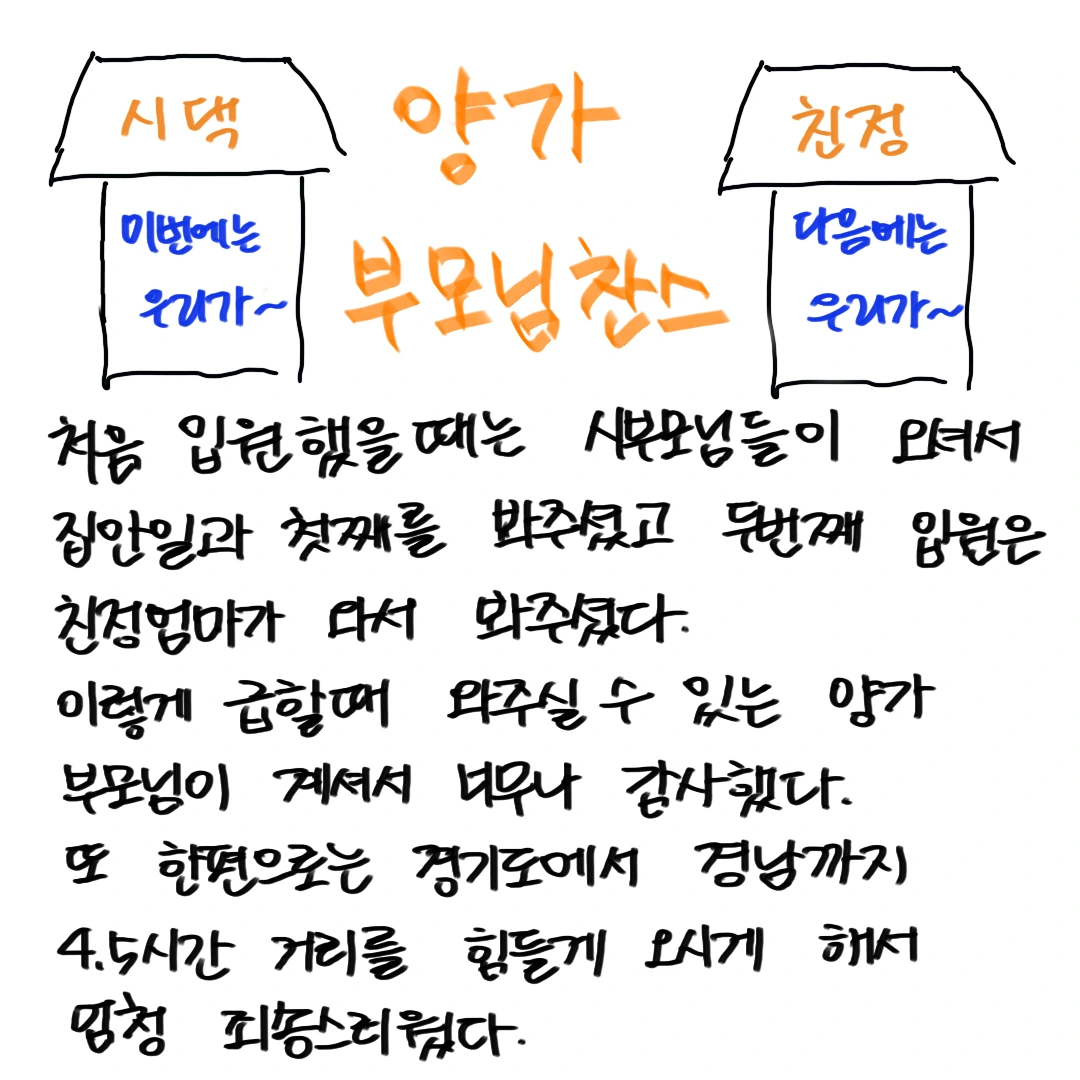 시댁
양가
친정
미번에는
우리가~
부모님찬스
다음에는
우리가~
처음 입원했을때는 시부모님들이 오셔서
집안일과 첫째를 봐주셨고 두번째 입원은
친정엄마가 와서 봐주셨다.
이렇게 급할때 와주실 수 있는 양가
부모님이 계셔서 너무나 감사했다.
또 한편으로는 경기도에서 경남까지
4.5시간 거리를 힘들게 오시게 해서
엄청 죄송스러웠다.